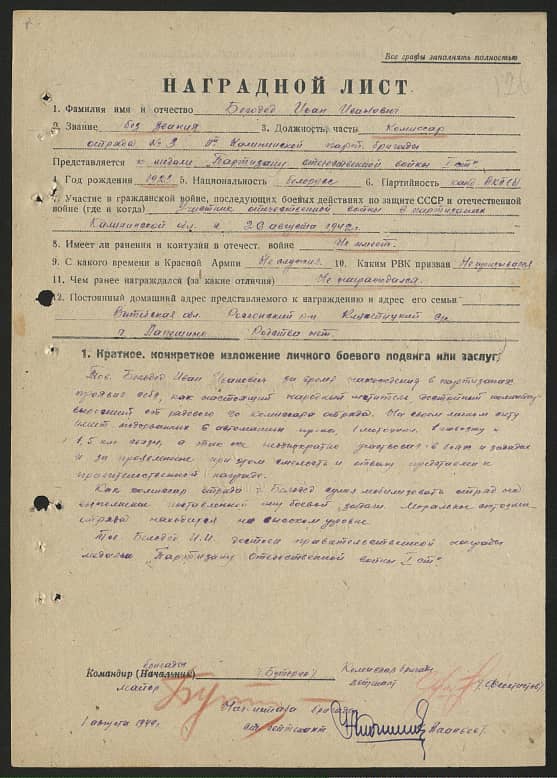 Все графы заполнять полностью
126
НАГРАДНОЙ ЛИСТ
1. Фамилия имя и отчество Белодед Иван Иванович
2. Звание без звания 3. Должность, часть Комиссар
отряда № 3 Калининской парт. бригады
Представляется к медали "Партизану отечественной войны" I ст.
4. Год рождения 5. Национальность Белорус 6. Партийность канд. ВКП(б)
7. Участие в гражданской войне, последующих боевых действиях по защите СССР и отечественной
войне (где и когда) Участник отечественной войны в партизанах
Калининской обл. с 20 августа 1942 г.
8. Имеет ли ранения и контузии в отечест. войне Не имеет.
9. С какого времени в Красной Армии Не служил. 10. Каким РВК призван Не призывался
11. Чем ранее награждался (за какие отличия) Не награждался.
12. Постоянный домашний адрес представляемого к награждению и адрес его семьи
Витебская обл. Россонский р-н Клястицкий с/с
Родства нет.
1. Краткое, конкретное изложение личного боевого подвига или заслуг
Тов. Белодед Иван Иванович за время нахождения в партизанах
проявил себя, как настоящий народный мститель, достойный командир
выросший от рядового до комиссара отряда. На своем личном счету
имеет подорванных 6 автомашин пр-ка, 1 мотоцикл,
1,5 км связи, а так же неоднократно участвовал в боях и засадах
и за проявленные при этом смелость и отвагу представлен к
правительственной награде.
Как комиссар отряда т. Белодед сумел мобилизовать отряд на
выполнение поставленной ему боевой задачи. Моральное состояние
отряда находится на высоком уровне
Тов. Белодед И.И. достоин правительственной награды
медалью "Партизану Отечественной войны" I ст.
бригады
Командир (Начальник)
майор
Комиссар бригады
Нач. штаба бригады
лейтенант
1 августа 1944 г.